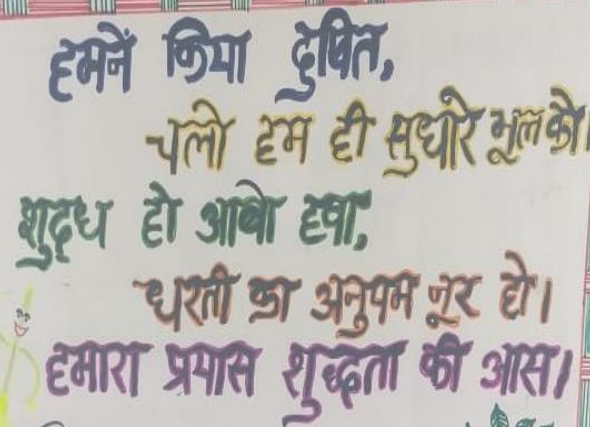 हमनें किया दुषित,
चलो हम ही सुधारे भूल को।
शुद्ध हो आबो हवा,
धरती का अनुपम नूर हो।
हमारा प्रयास शुद्धता की आस।